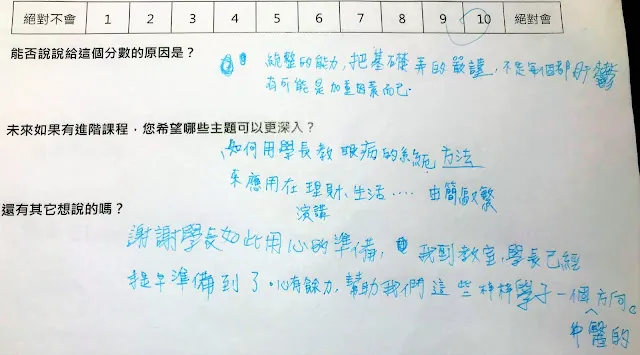 絕對不會 1 2 3 4 5 6 7 8 9 10 絕對會
能否說說給這個分數的原因是?
統整的能力,把基礎弄的嚴謹,不是每個都肝鬱
有可能是加重因素而已.
未來如果有進階課程,您希望哪些主題可以更深入?
如何用學長教眼病的系統方法
來應用在理財、生活....由簡馭繁
演講
還有其它想說的嗎?
謝謝學長如此用心的準備,我到教室,學長已經
提早準備到了。心有餘力,幫助我們這些莘莘學子一個方向。
中醫的